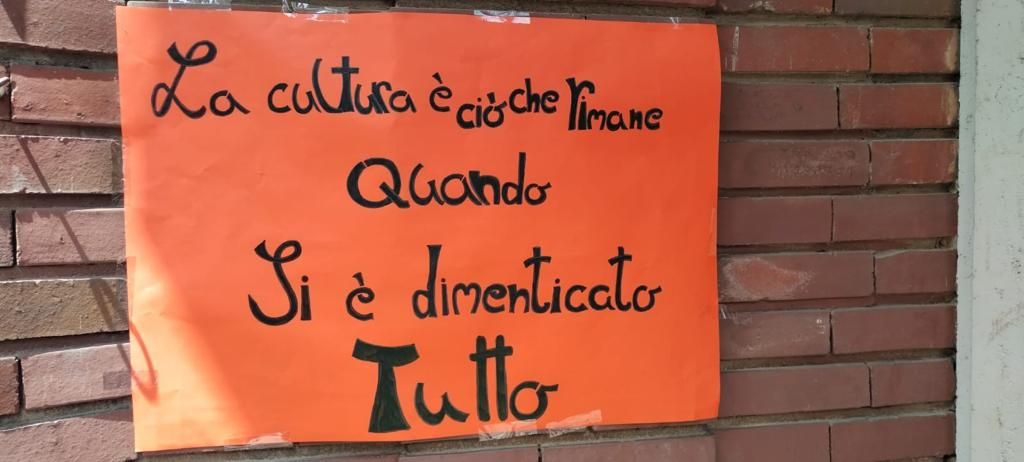 La cultura è ciò che rimane
Quando
Si è dimenticato
Tutto